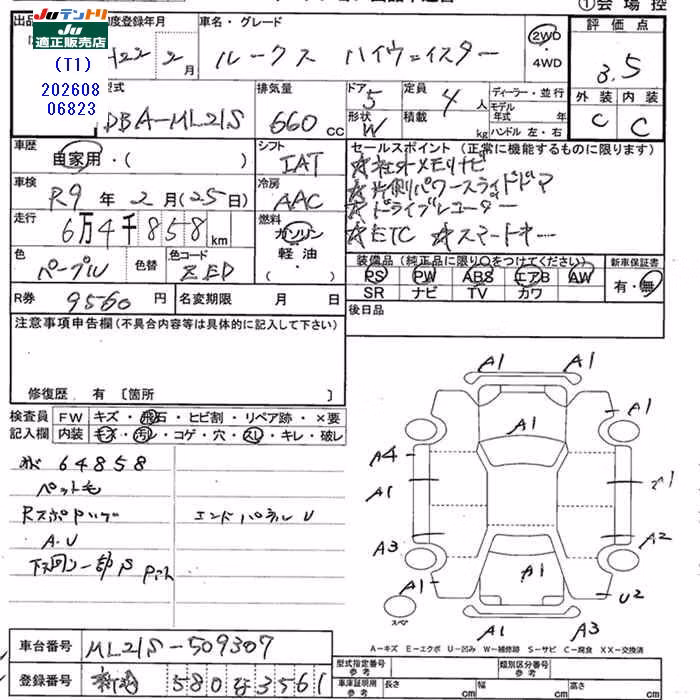 ①会場控
Juテントリ
Ju適正販売店
(T1)
202608
06823
初度登録年月
H22年2月
車名・グレード
ルークス ハイウェイスター
2WD
・4WD
評価点
3.5
外装 内装
C C
型式
DBA-ML21S
排気量
660cc
ドア
5
形状
W
定員
4人
積載 kg
ディーラー・並行
モデル年式 年
ハンドル 左・右
車歴
自家用・( )
シフト
IAT
車検
R9年2月(25日)
冷房
AAC
走行
6万4千858km
燃料
ガソリン
軽油
・( )
色
パープル
色替
色コード
ZED
R券 9560円
名変期限 月 日
セールスポイント (正常に機能するものに限ります)
☆社外メモリナビ
☆片側パワースライドドア
☆ドライブレコーダー
☆ETC ☆スマートキー
装備品 (純正品に限り○をつけてください)
PS PW ABS エアB AW
SR ナビ TV カワ
新車保証書
有・無
後日品
注意事項申告欄(不具合内容等は具体的に記入して下さい)
修復歴 有 〔箇所 〕
検査員
記入欄
FW キズ・飛石・ヒビ割・リペア跡・×要
内装 キズ・汚れ・コゲ・穴・スレ・キレ・破レ
64858
ペット毛
A.U
エンドパネルU
A1
A1
A1
A1
A4
A1
A1
A3
A2
A1
A1
U2
A1
A3
スペア
A-キズ E-エクボ U-凹み W-補修跡 S-サビ C-腐食 XX-交換済
車台番号 ML21S-509307
登録番号 新潟 580な3561
型式指定番号
参考
類別区分番号
参考
車庫証明用
参考
長さ cm
幅 cm
高さ cm